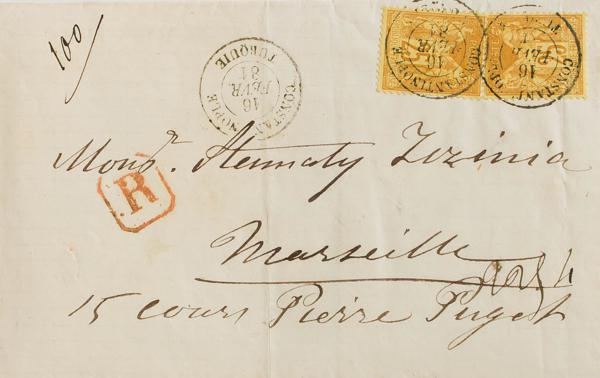 100
CONSTANTINOPLE
TURQUIE
16
FEVR
81
CONSTANTINOPLE
16
FEVR
CONSTANTINOPLE
16
FEVR
Monsr. Stamaty Zizinia
R
Marseille
15 Cours Pierre Puget